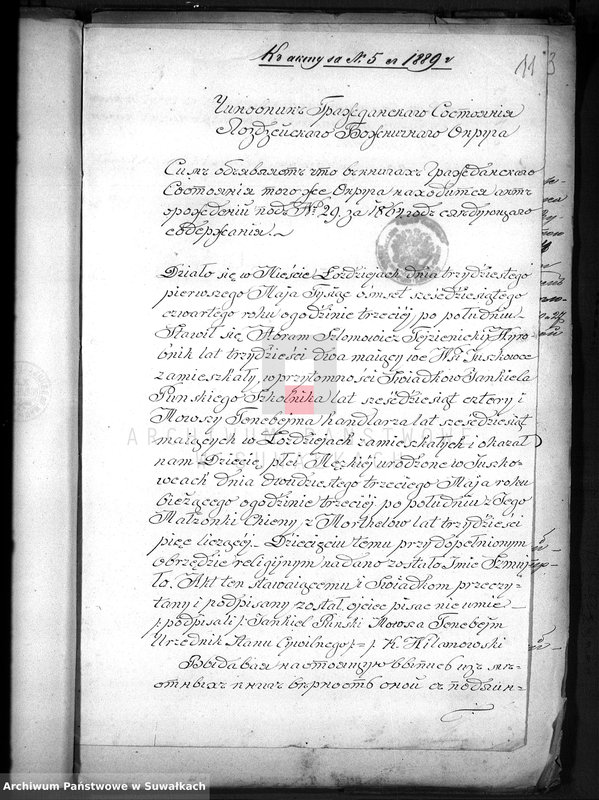 Къ акту за № 5 съ 1889 г
11 3
Чиновникъ Гражданскаго Состоянія
Лоздзейскаго Божничнаго Округа
Симъ объявляетъ что въ книгахъ Гражданскаго
Состоянія того же Округа находится актъ
о рожденіи подъ № 29. за 1864 годъ слѣдующаго
содержанія.
Działo się w Mieście Łoździejach dnia trzydziestego
pierwszego Maja Tysiąc ósmset sześćdziesiątego
czwartego roku ogodzinie trzeciej po południu
Stawił się Abram Szlomowicz Wyro-
bnik lat trzydzieści dwa maiący we Wsi Juszkowce
zamieszkały, w przytomności Swiadków Jankiela
Puńskiego Szkolnika lat sześćdziesiąt cztery i
Mowszy Tenebejma handlarza lat sześćdziesiąt
maiących w Łoździejach zamieszkałych i okazał
nam Dziecię płci Męzkiéj urodzone w Juszko-
wcach dnia dwudziestego trzeciego Maja roku
bieżącego ogodzinie trzeciéj po południu z Jego
Małżonki Chieny z Morthelów lat trzydzieści
pięc liczącéj. Dziecięciu temu przy dopełnionym
obrzędzie religijnym nadano zostało Imie Szmuj-
ło. Akt ten stawaiącemu i Swiadkom przeczy-
tany i podpisany został, ojciec pisać nie umie
podpisali Jankiel Puński Mowsza Tenebejm
Urzednik Stanu Cywilnego K. Hilanowski
Выдавая настоящую выпись изъ мѣ-
стныхъ книгъ вѣрность оной съ подлин-
ARCHIWUM PAŃSTWOWE
W SUWAŁKACH
Archiwum Państwowe w Suwałkach